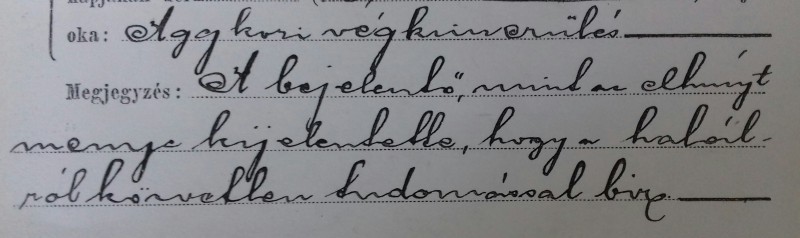 oka: Aggkori végkimerülés
Megjegyzés: A bejelentő, mint az elhúnyt
menye kijelentette, hogy a halál-
ról közvetlen tudomással bir